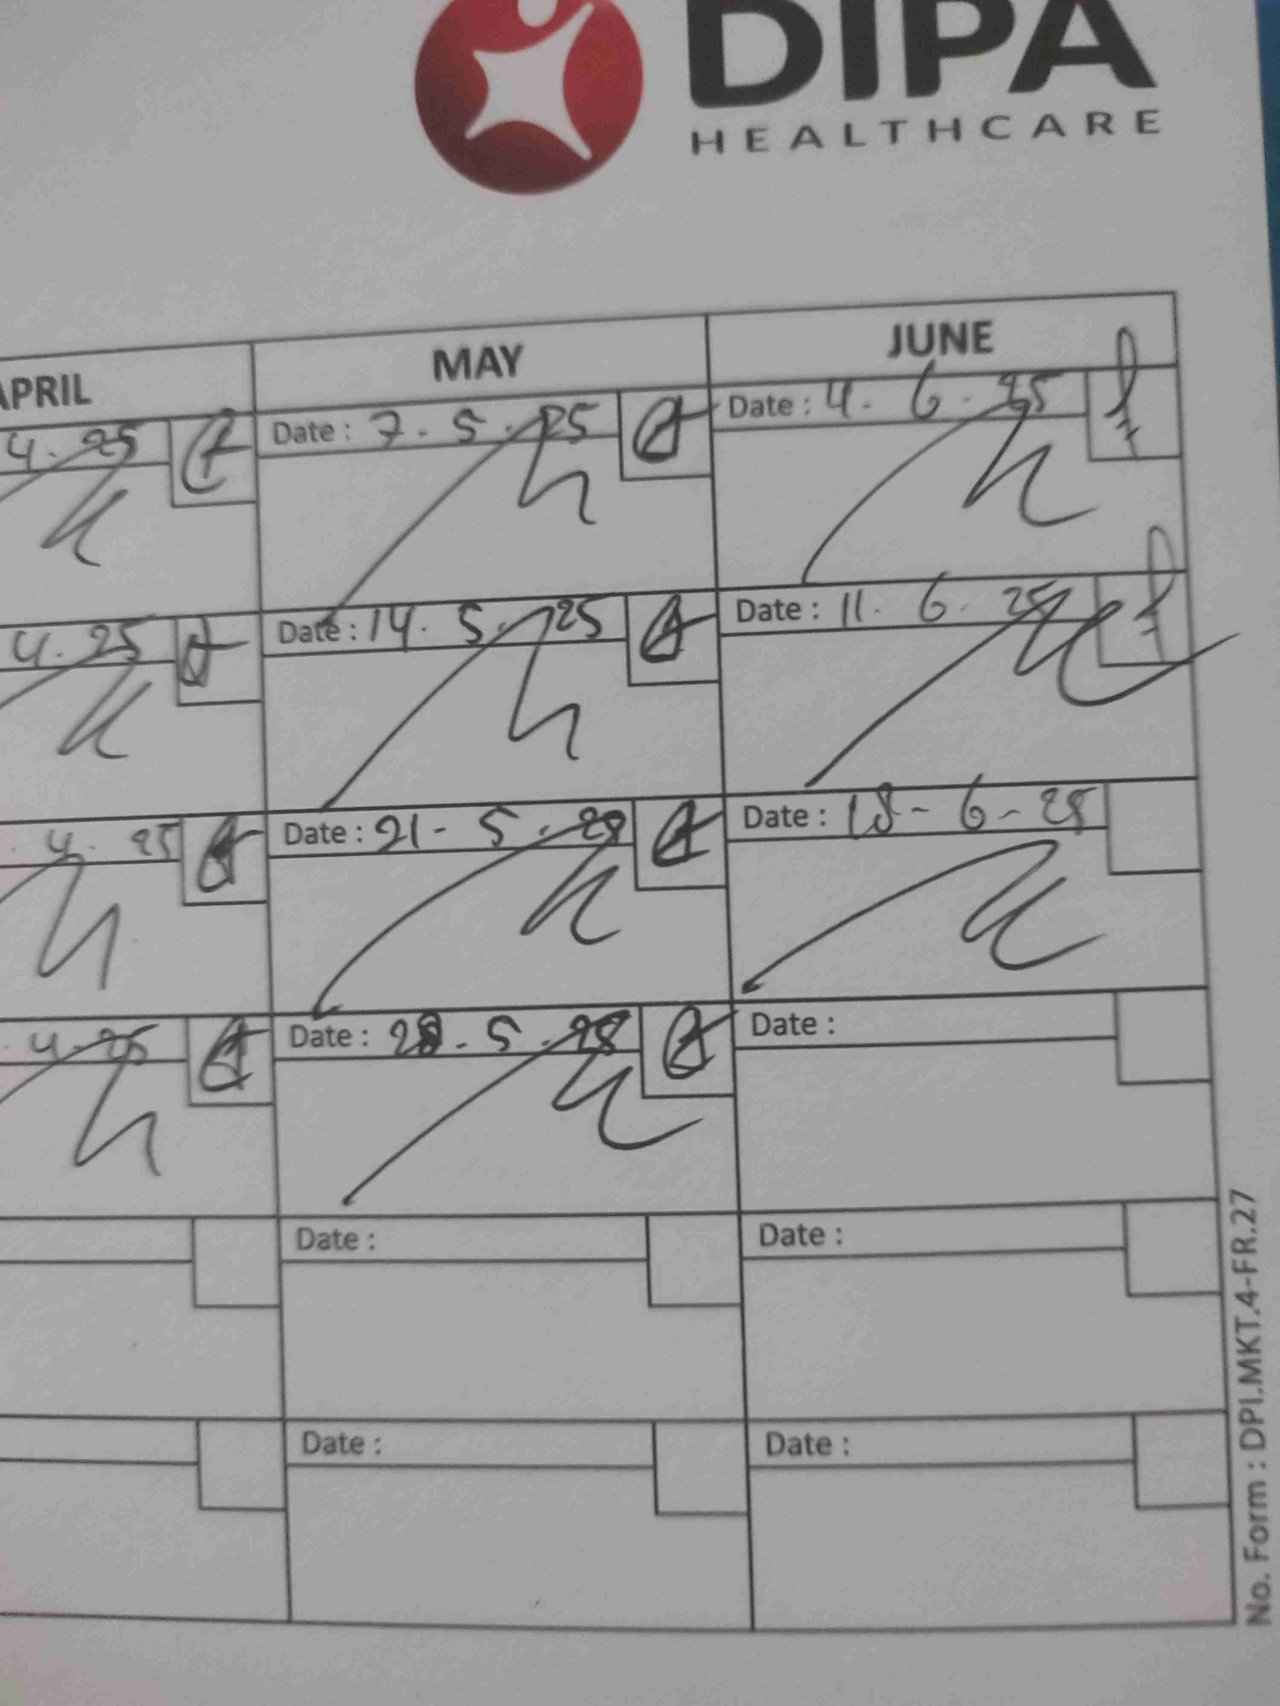 DIPA
HEALTHCARE
APRIL MAY JUNE
4. 25 Date : 7. 5. 25 Date : 4. 6. 25
4. 25 Date : 14. 5. 25 Date : 11. 6. 25
. 4. 25 Date : 21 - 5. 25 Date : 18 - 6 - 25
. 4. 25 Date : 28. 5. 25 Date :
Date : Date :
Date : Date :
No. Form : DPI.MKT.4-FR.27